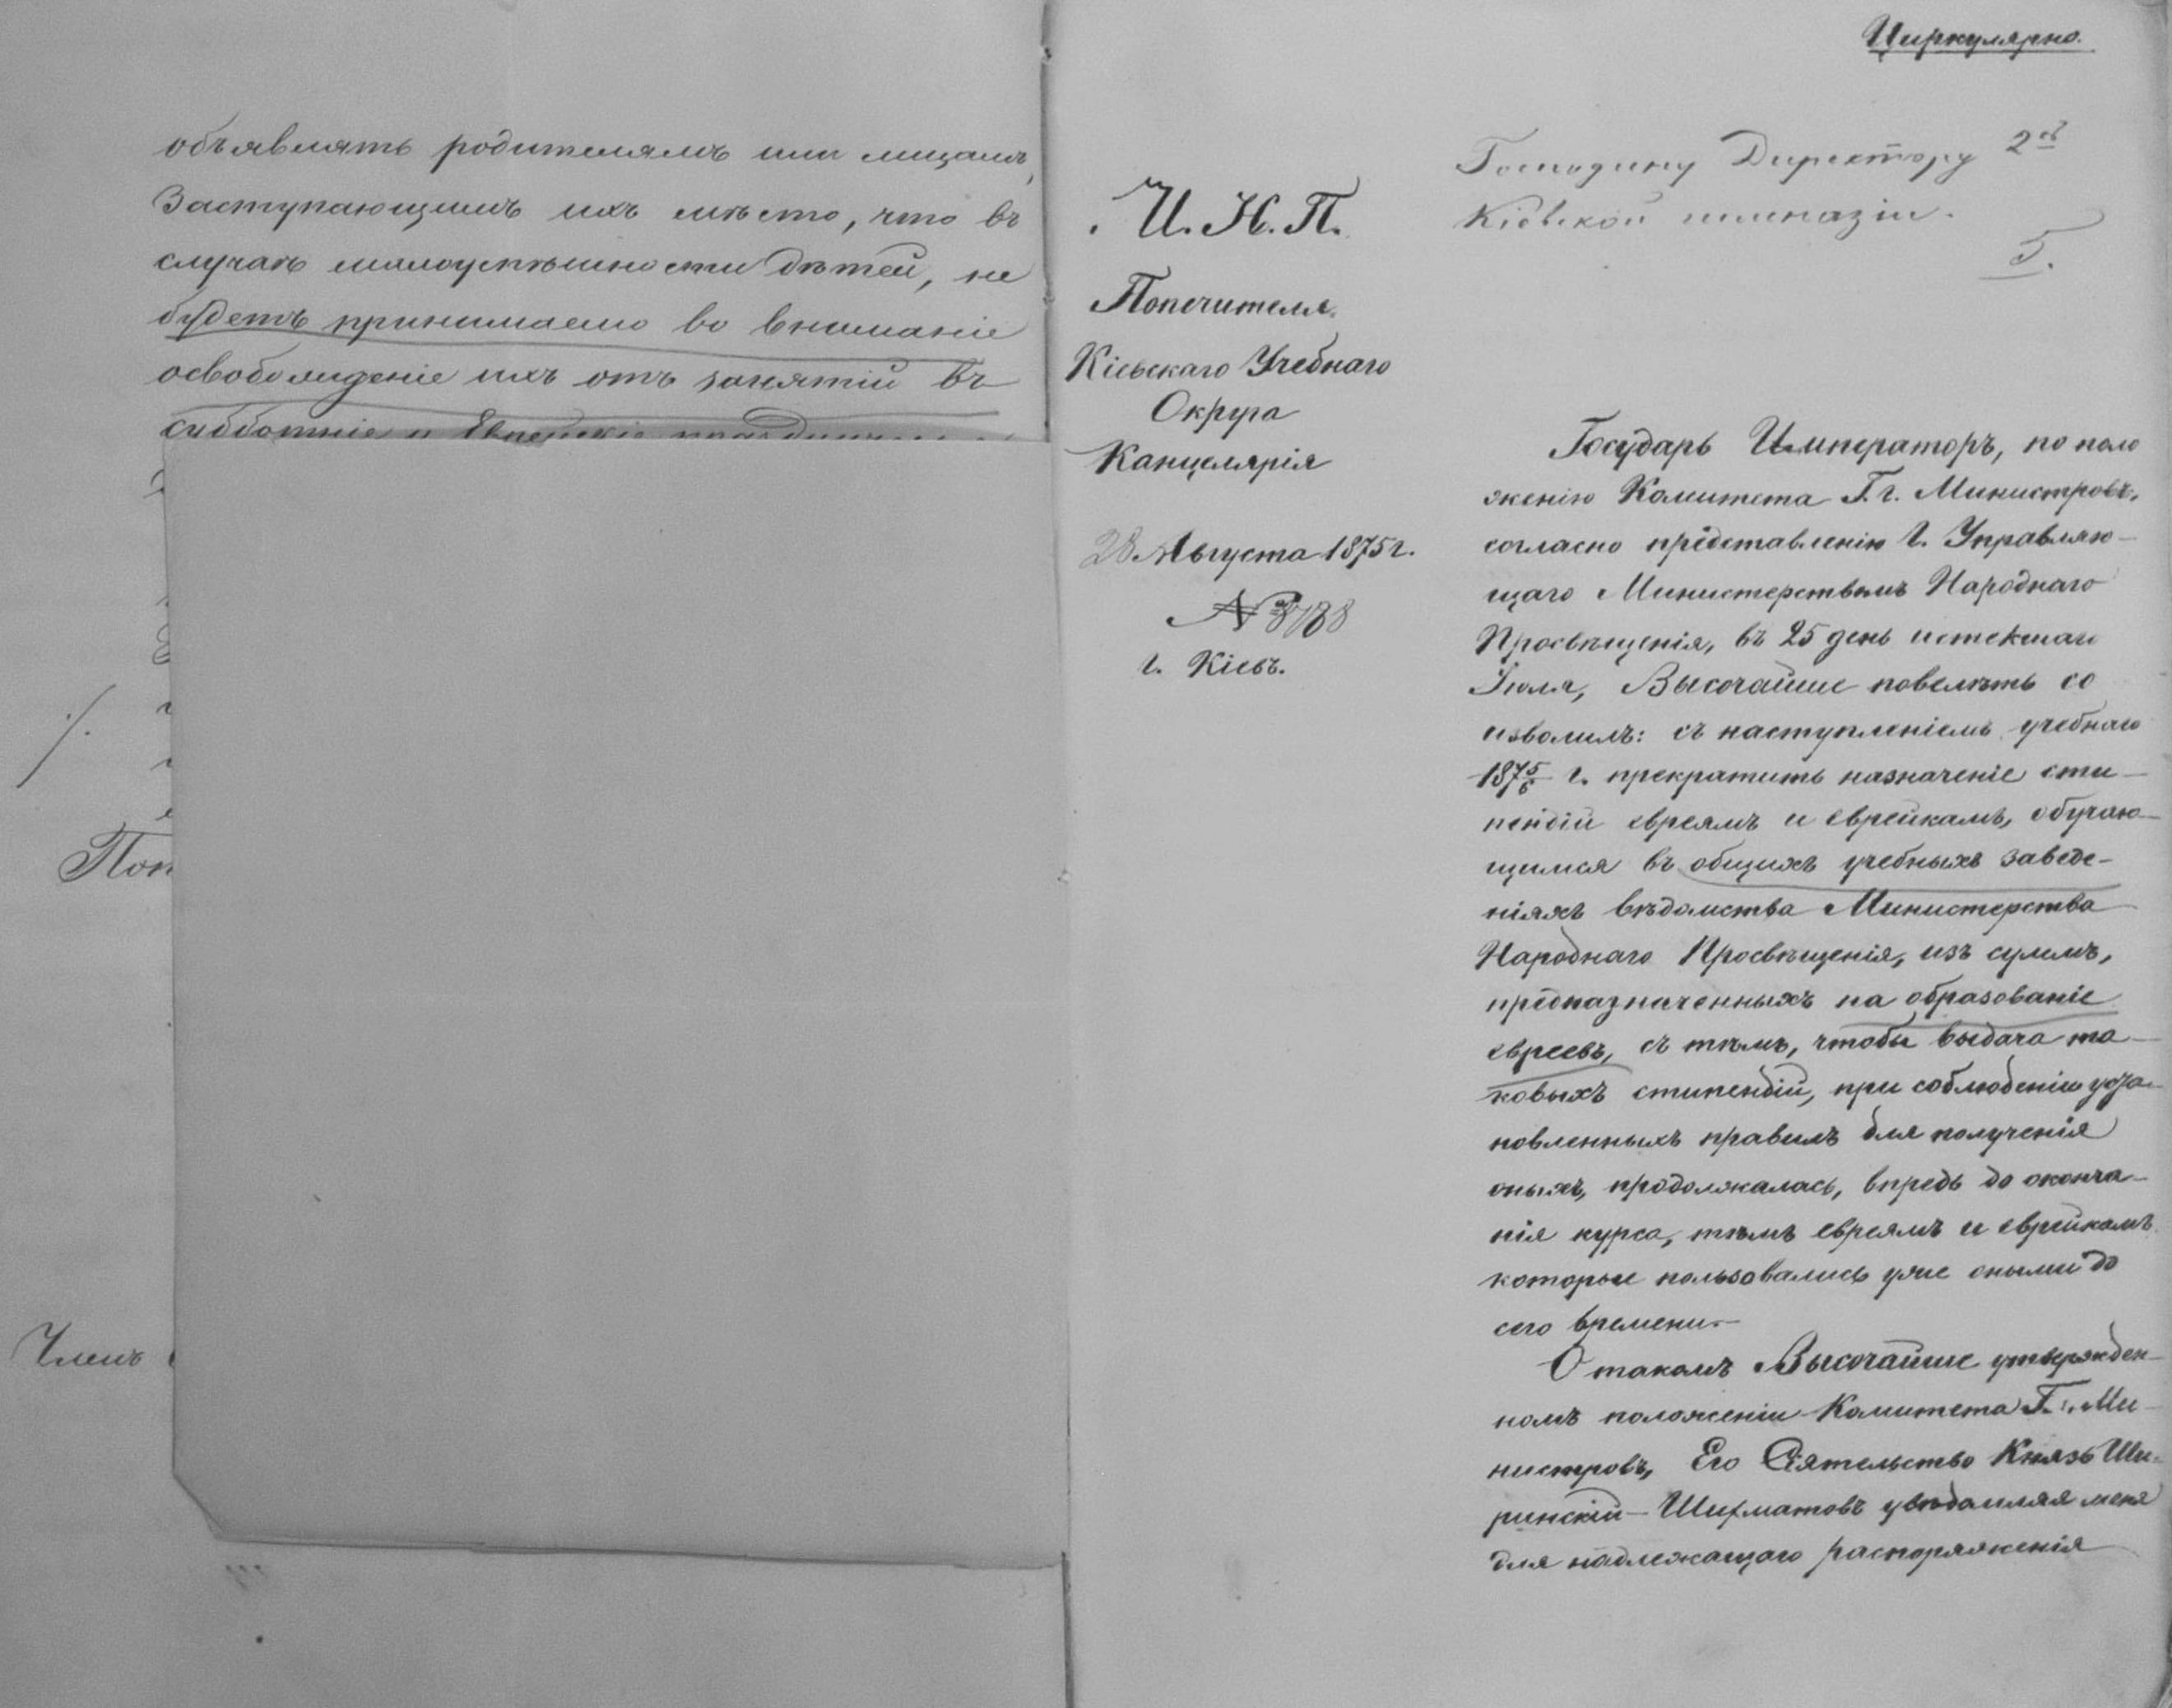 объявлять родителямъ или лицамъ,
заступающимъ ихъ мѣсто, что въ
случаѣ малоуспѣшности дѣтей, не
будетъ принимаемо во вниманіе
освобожденіе ихъ отъ занятій въ
субботніе и Еврейскіе
Поп
Членъ
Циркулярно.
Господину Директору 2ой
Кіевской гимназіи.
М. Н. П.
Попечителя
Кіевскаго Учебнаго
Округа
Канцелярія
28 Августа 1875 г.
№
г. Кіевъ.
Государь Императоръ, по поло
женію Комитета Г.г. Министровъ,
согласно представленію г. Управляю-
щаго Министерствомъ Народнаго
Просвѣщенія, въ 25 день истекшаго
Іюля, Высочайше повелѣть со
изволилъ: съ наступленіемъ учебнаго
1875/6 г. прекратить назначеніе сти-
пендій евреямъ и еврейкамъ, обучаю-
щимся въ общихъ учебныхъ заведе-
ніяхъ вѣдомства Министерства
Народнаго Просвѣщенія, изъ суммъ,
предназначенныхъ на образованіе
евреевъ, съ тѣмъ, чтобы выдача та-
ковыхъ стипендій, при соблюденіи уста-
новленныхъ правилъ для полученія
оныхъ, продолжалась, впредь до оконча-
нія курса, тѣмъ евреямъ и еврейкамъ
которые пользовались уже оными до
сего времени.-
О такомъ Высочайше утвержден-
номъ положеніи Комитета Г.г. Ми-
нистровъ, Его Сіятельство Князь Ши-
ринскій-Шихматовъ увѣдомляя меня
для надлежащаго распоряженія